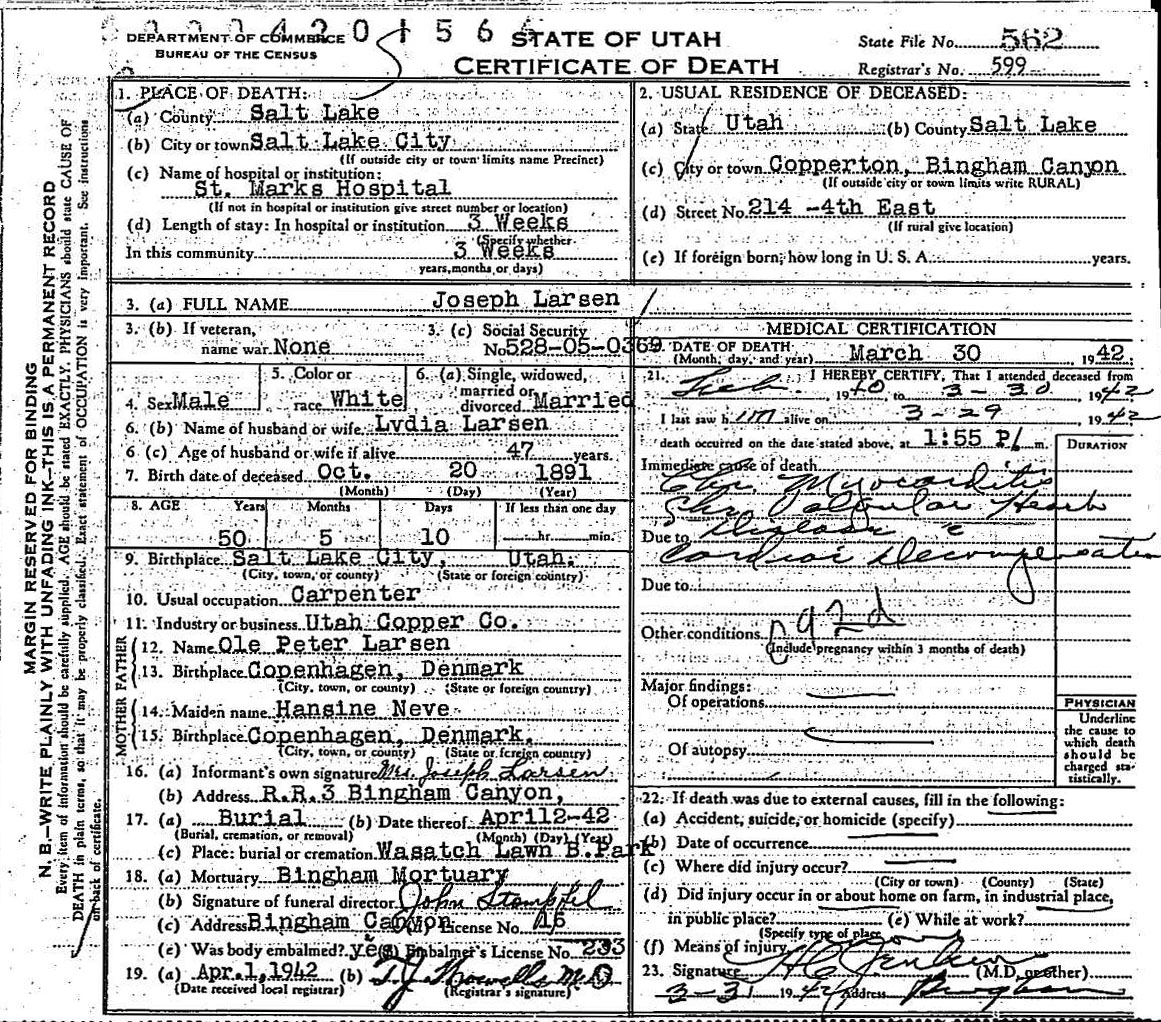 DEPARTMENT OF COMMERCE
BUREAU OF THE CENSUS
STATE OF UTAH
CERTIFICATE OF DEATH
State File No. 562
Registrar's No. 599
MARGIN RESERVED FOR BINDING
N. B.—WRITE PLAINLY WITH UNFADING INK—THIS IS A PERMANENT RECORD
Every item of information should be carefully supplied. AGE should be stated EXACTLY. PHYSICIANS should state CAUSE OF
DEATH in plain terms, so that it may be properly classified. Exact statement of OCCUPATION is very important. See instructions
on back of certificate.
1. PLACE OF DEATH:
(a) County Salt Lake
(b) City or town Salt Lake City
(If outside city or town limits name Precinct)
(c) Name of hospital or institution:
St. Marks Hospital
(If not in hospital or institution give street number or location)
(d) Length of stay: In hospital or institution 3 Weeks
(Specify whether
In this community 3 Weeks
years, months or days)
2. USUAL RESIDENCE OF DECEASED:
(a) State Utah (b) County Salt Lake
(c) City or town Copperton, Bingham Canyon
(If outside city or town limits write RURAL)
(d) Street No. 214 -4th East
(If rural give location)
(e) If foreign born, how long in U. S. A. years.
3. (a) FULL NAME Joseph Larsen
3. (b) If veteran,
name war None
3. (c) Social Security
No. 528-05-0369
4. Sex Male
5. Color or
race White
6. (a) Single, widowed,
married or
divorced Married
6. (b) Name of husband or wife Lydia Larsen
6 (c) Age of husband or wife if alive 47 years.
7. Birth date of deceased Oct. 20 1891
(Month) (Day) (Year)
8. AGE Years Months Days If less than one day
50 5 10 hr. min.
9. Birthplace Salt Lake City, Utah.
(City, town, or county) (State or foreign country)
10. Usual occupation Carpenter
11. Industry or business Utah Copper Co.
FATHER
12. Name Ole Peter Larsen
13. Birthplace Copenhagen, Denmark
(City, town, or county) (State or foreign country)
MOTHER
14. Maiden name Hansine Neve
15. Birthplace Copenhagen, Denmark.
(City, town, or county) (State or foreign country)
16. (a) Informant's own signature Mrs. Joseph Larsen
(b) Address R.R.3 Bingham Canyon,
17. (a) Burial (b) Date thereof April2-42
(Burial, cremation, or removal) (Month) (Day) (Year)
(c) Place: burial or cremation Wasatch Lawn B.Park
18. (a) Mortuary Bingham Mortuary
(b) Signature of funeral director John Stampfel
(c) Address Bingham Canyon License No. 16
(e) Was body embalmed? yes Embalmer's License No. 233
19. (a) Apr.1,1942 (b) T. J. Howells M.D
(Date received local registrar) (Registrar's signature)
MEDICAL CERTIFICATION
20. DATE OF DEATH
(Month, day, and year) March 30 , 1942.
21. I HEREBY CERTIFY, That I attended deceased from
Feb 1940 to 3-30 , 1942
I last saw him alive on 3-29 1942
death occurred on the date stated above, at 1:55 P. m.
DURATION
Immediate cause of death
Chr. Myocarditis
Chr Valvular Heart
Due to Disease c
Cardiac Decompensation
Due to
92d
Other conditions
(Include pregnancy within 3 months of death)
Major findings:
Of operations
Of autopsy
PHYSICIAN
Underline
the cause to
which death
should be
charged sta-
tistically.
22. If death was due to external causes, fill in the following:
(a) Accident, suicide, or homicide (specify)
(b) Date of occurrence
(c) Where did injury occur?
(City or town) (County) (State)
(d) Did injury occur in or about home on farm, in industrial place,
in public place? (e) While at work?
(Specify type of place
(f) Means of injury
23. Signature (M.D. or other)
3-31 1942 Address Bingham